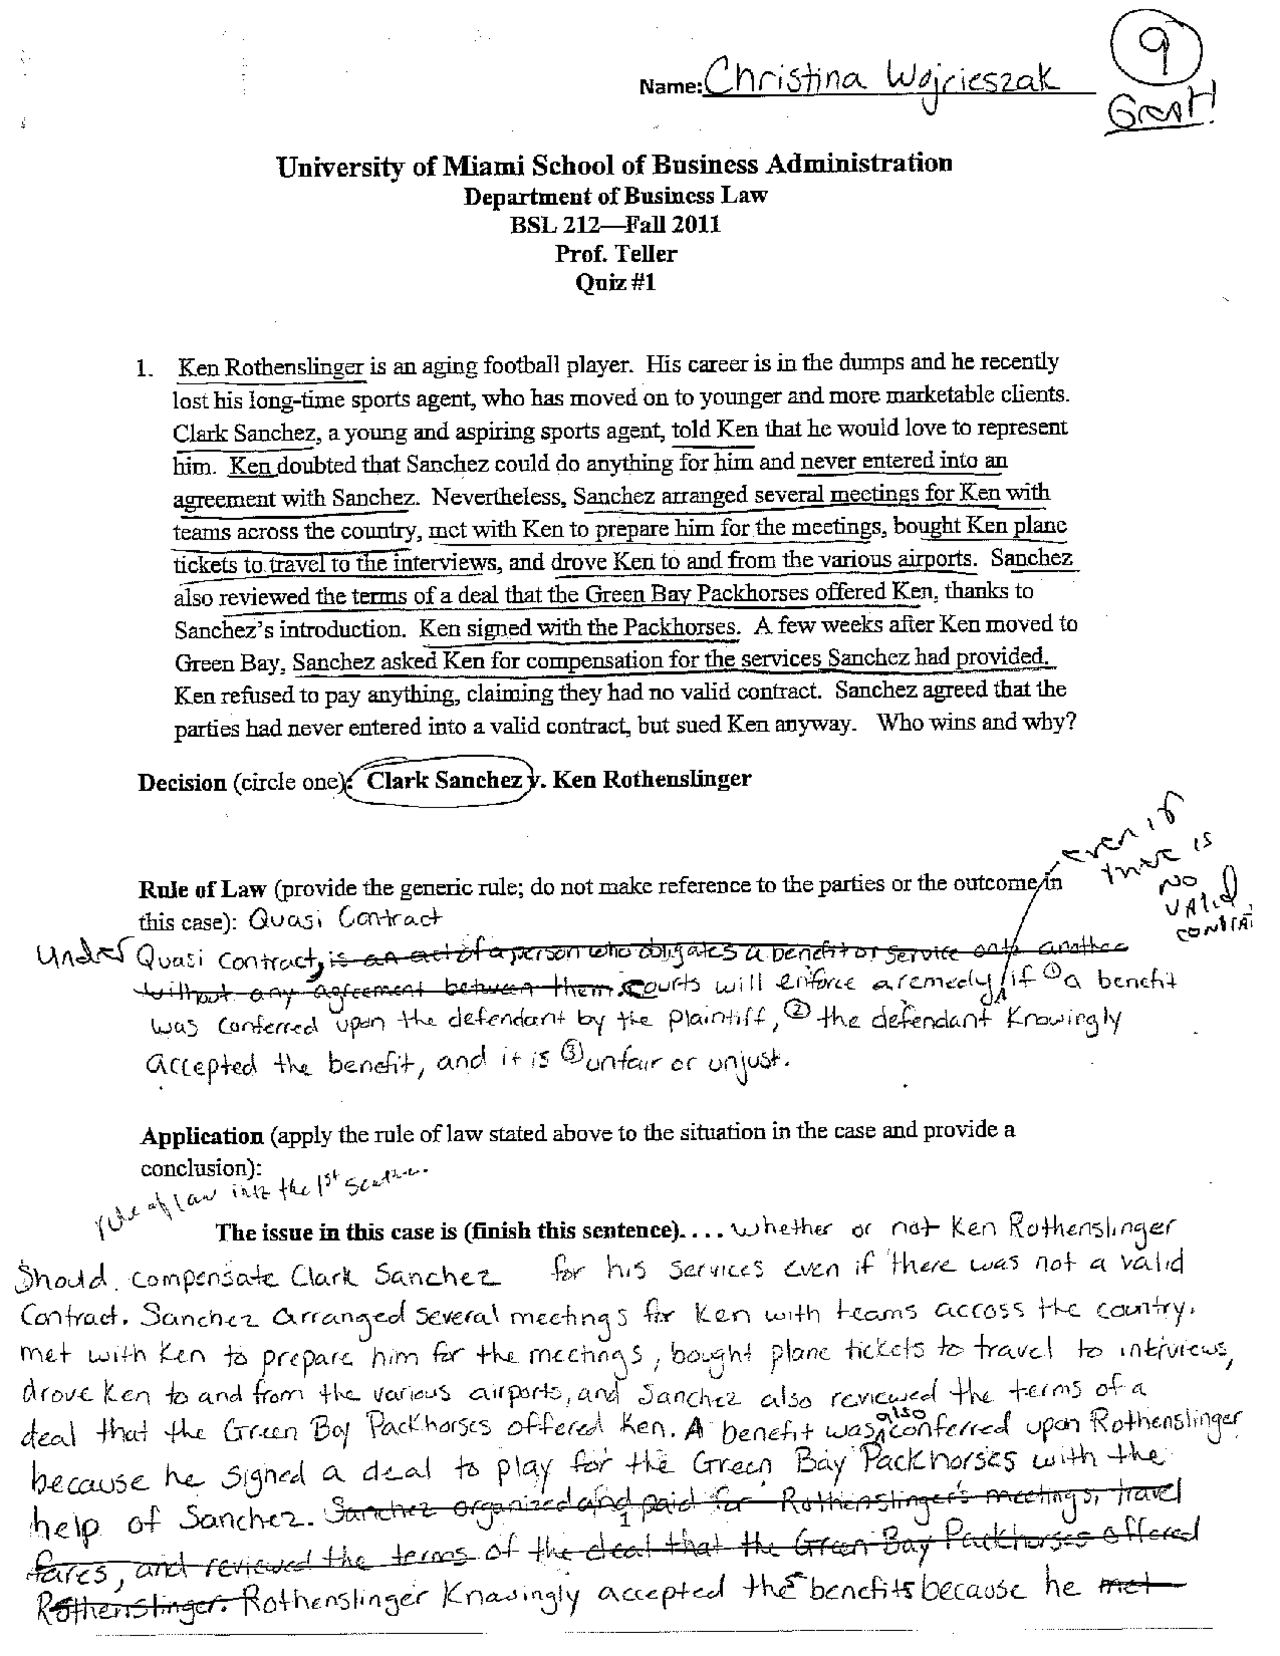 9
Great!
Name: Christina Wojcieszak
University of Miami School of Business Administration
Department of Business Law
BSL 212—Fall 2011
Prof. Teller
Quiz #1
1. Ken Rothenslinger is an aging football player. His career is in the dumps and he recently
lost his long-time sports agent, who has moved on to younger and more marketable clients.
Clark Sanchez, a young and aspiring sports agent, told Ken that he would love to represent
him. Ken doubted that Sanchez could do anything for him and never entered into an
agreement with Sanchez. Nevertheless, Sanchez arranged several meetings for Ken with
teams across the country, met with Ken to prepare him for the meetings, bought Ken plane
tickets to travel to the interviews, and drove Ken to and from the various airports. Sanchez
also reviewed the terms of a deal that the Green Bay Packhorses offered Ken, thanks to
Sanchez's introduction. Ken signed with the Packhorses. A few weeks after Ken moved to
Green Bay, Sanchez asked Ken for compensation for the services Sanchez had provided.
Ken refused to pay anything, claiming they had no valid contract. Sanchez agreed that the
parties had never entered into a valid contract, but sued Ken anyway. Who wins and why?
Decision (circle one): Clark Sanchez v. Ken Rothenslinger
even if
there is
no
valid
contract
Rule of Law (provide the generic rule; do not make reference to the parties or the outcome in
this case): Quasi Contract
Under Quasi Contract, is an act of a person who obligates a benefit or service onto another
without any agreement between them. courts will enforce a remedy if ① a benefit
was conferred upon the defendant by the plaintiff, ② the defendant knowingly
accepted the benefit, and it is ③ unfair or unjust.
Application (apply the rule of law stated above to the situation in the case and provide a
conclusion):
rule of law into the 1st sentence.
The issue in this case is (finish this sentence).... whether or not Ken Rothenslinger
should compensate Clark Sanchez for his services even if there was not a valid
Contract. Sanchez arranged several meetings for Ken with teams accross the country,
met with Ken to prepare him for the meetings, bought plane tickets to travel to interviews,
drove Ken to and from the various airports, and Sanchez also reviewed the terms of a
deal that the Green Bay Packhorses offered Ken. A benefit was also conferred upon Rothenslinger
because he signed a deal to play for the Green Bay Packhorses with the
help of Sanchez. Sanchez organized and paid for Rothenslinger's meetings, travel
fares, and reviewed the terms of the deal that the Green Bay Packhorses offered
Rothenslinger. Rothenslinger Knowingly accepted the benefits because he met